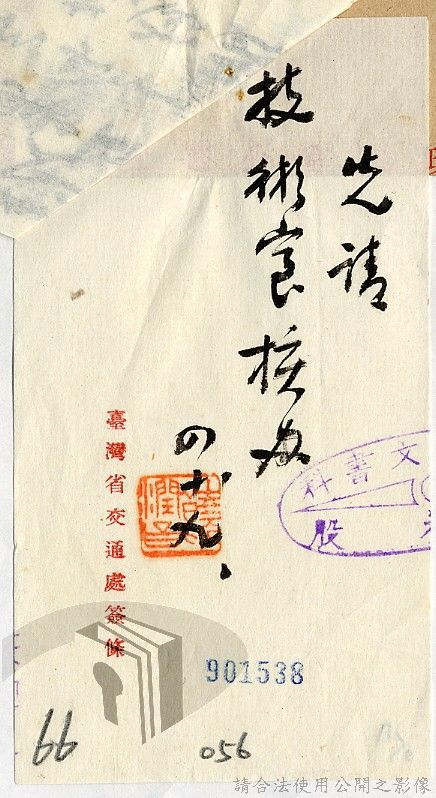 先請
技術室核办
四十九、
臺灣省交通處簽條
文書科
股
901538
66
056
請合法使用公開之影像